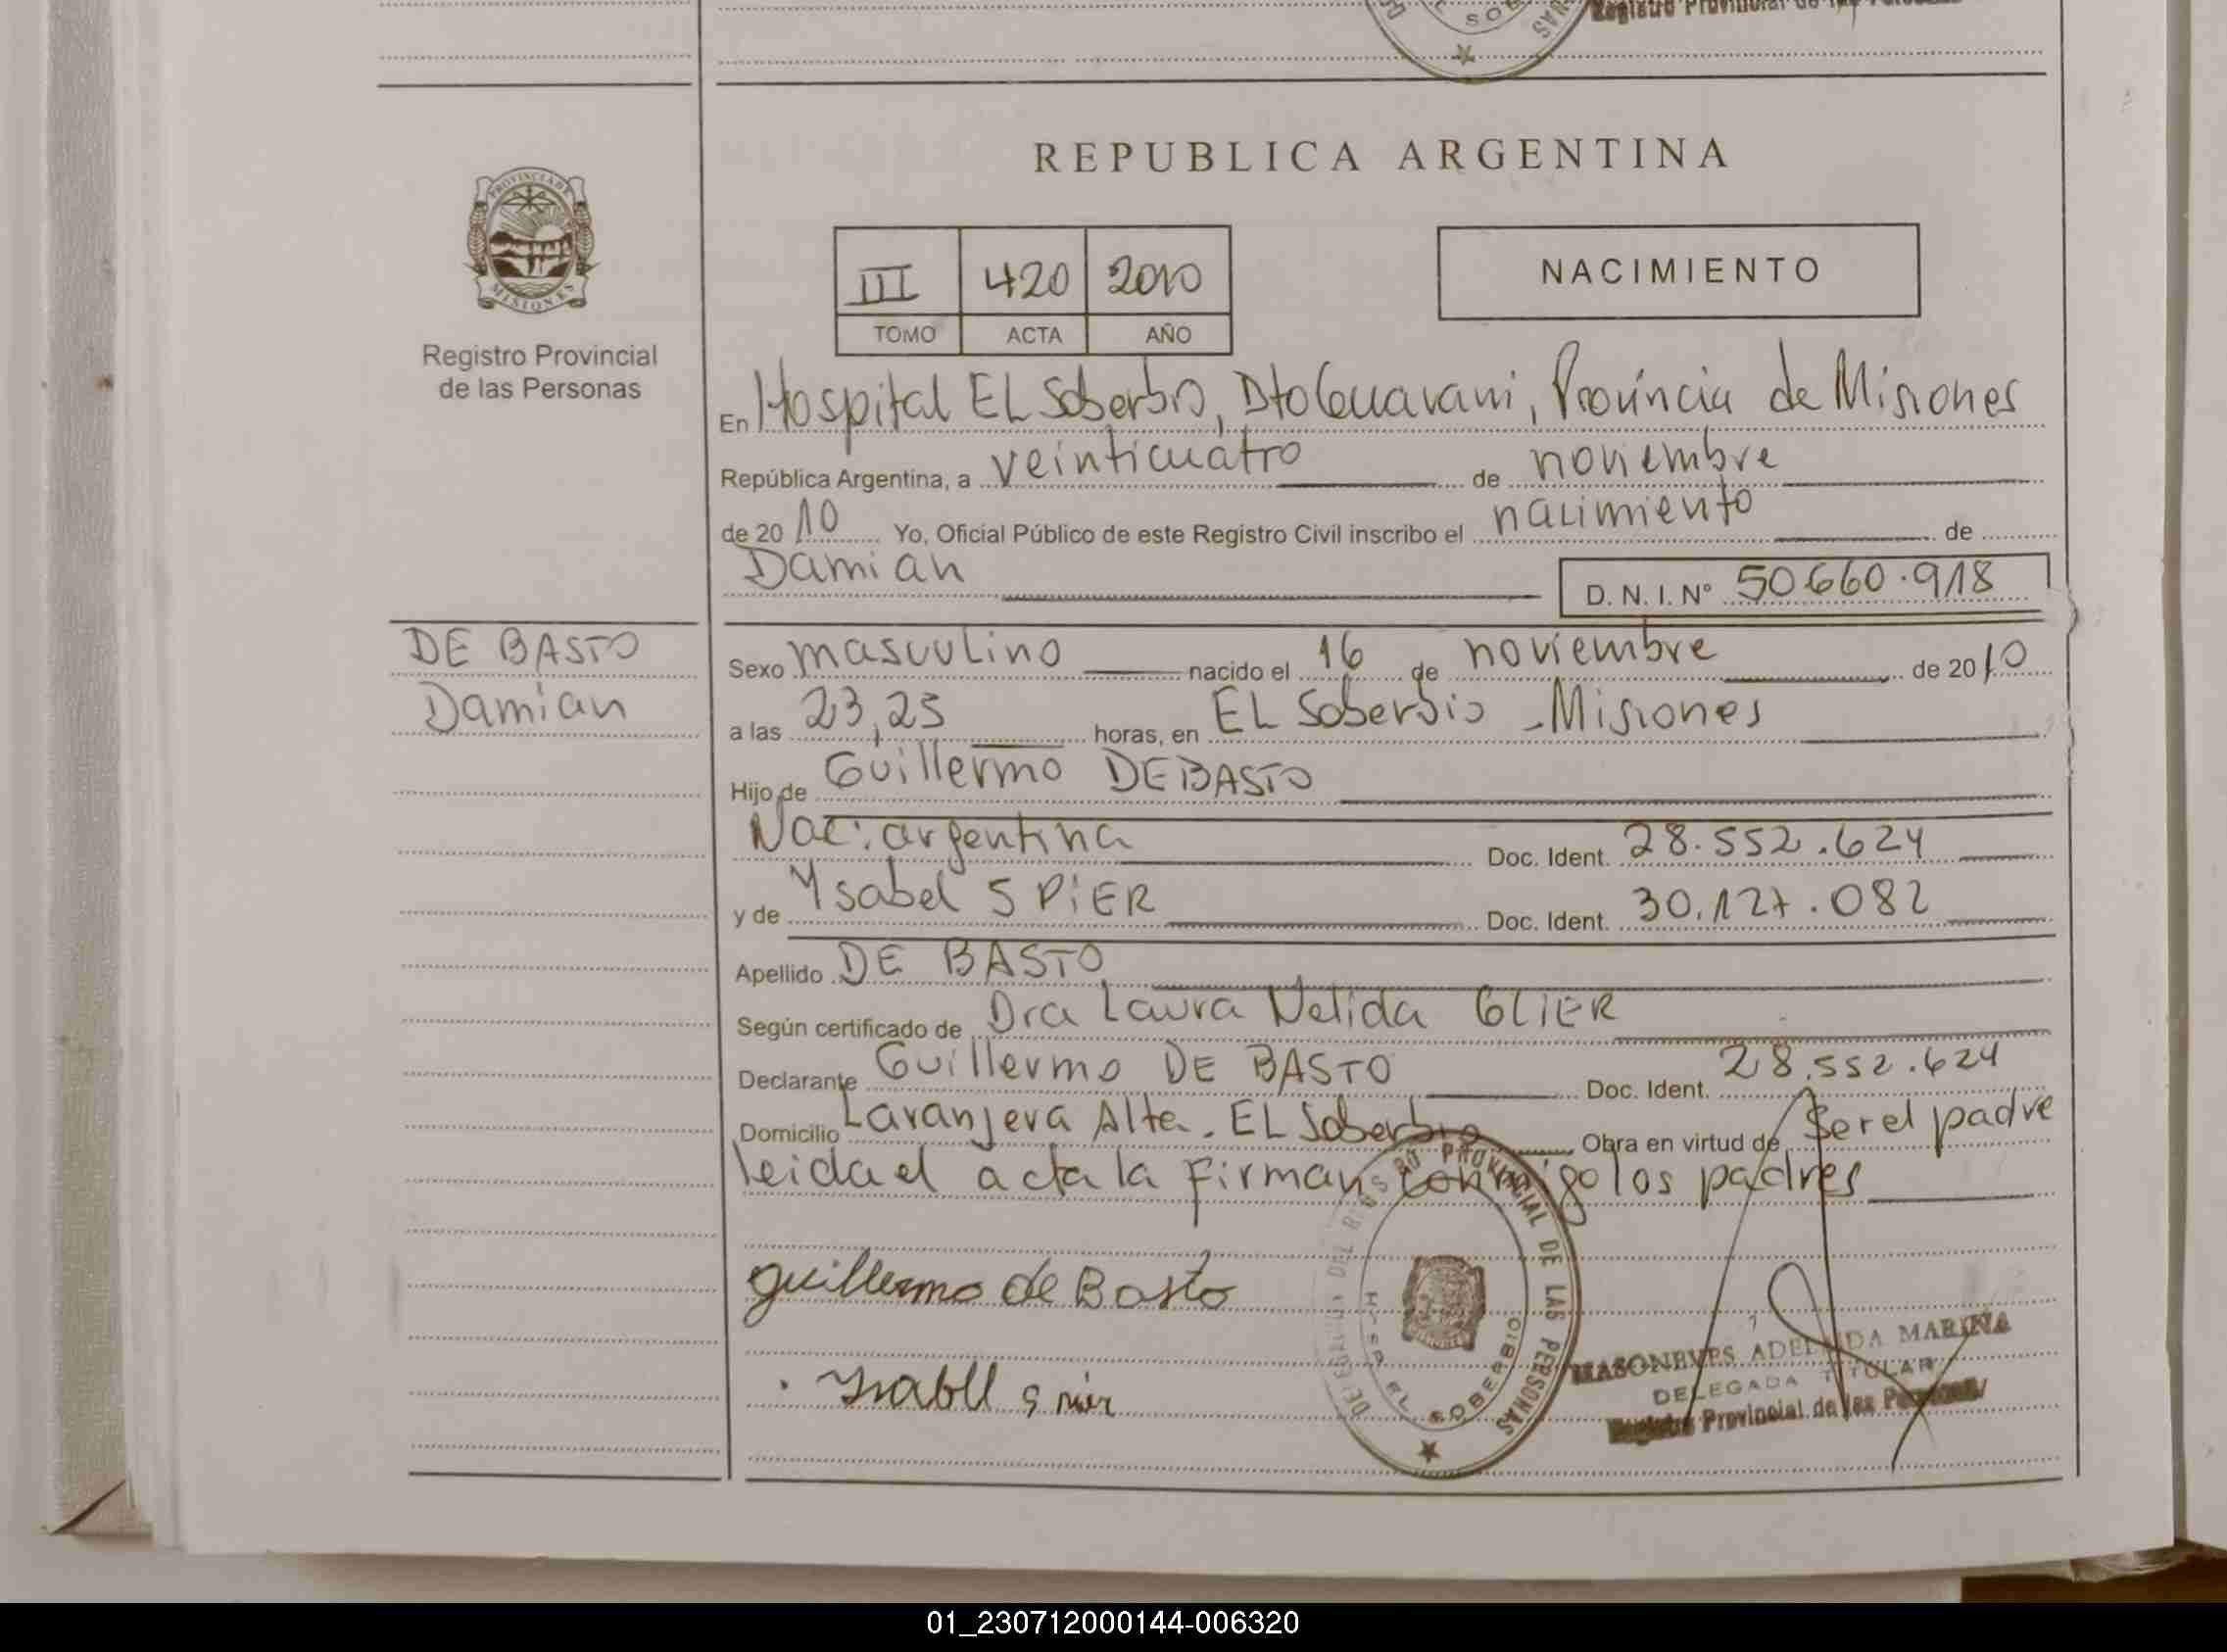 Registro Provincial de las Personas
REPUBLICA ARGENTINA
PROVINCIA DE
MISIONES
Registro Provincial
de las Personas
III 420 2010
TOMO ACTA AÑO
NACIMIENTO
En Hospital EL Soberbio, Dto Guarani, Provincia de Misiones
República Argentina, a veinticuatro de noviembre
de 2010 Yo, Oficial Público de este Registro Civil inscribo el nacimiento de
Damian D. N. I. Nº 50660.918
DE BASTO
Damian
Sexo masculino nacido el 16 de noviembre de 2010
a las 23,25 horas, en EL Soberbio - Misiones
Hijo de Guillermo DE BASTO
Nac: argentina Doc. Ident. 28.552.624
y de Ysabel SPiER Doc. Ident. 30.127.082
Apellido DE BASTO
Según certificado de Dra Laura Nelida GLiER
Declarante Guillermo DE BASTO Doc. Ident. 28.552.624
Domicilio Laranjera Alta. EL Soberbio Obra en virtud de Ser el padre
leida el acta la firman conmigo los padres
guillermo de Basto
PROVINCIAL DE LAS PERSONAS
EL SOBERBIO
MARINA
DELEGADA TITULAR
Registro Provincial de las Personas
01_230712000144-006320